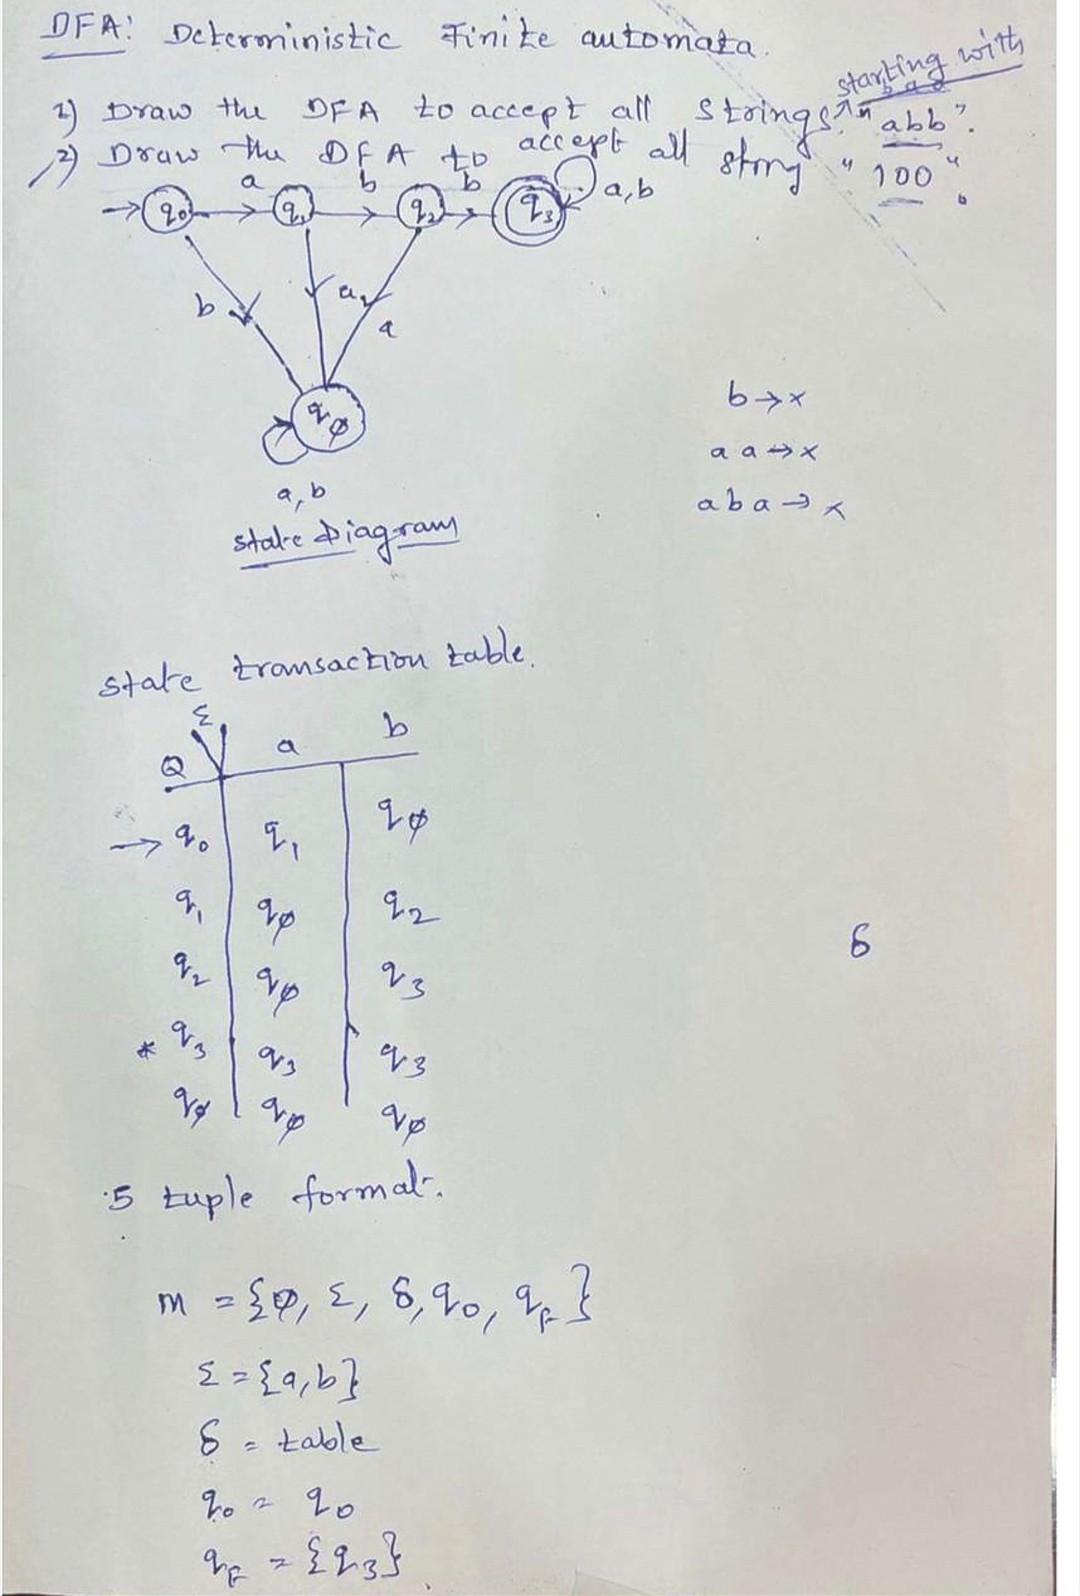 DFA: Deterministic Finite automata.
starting with
1) Draw the DFA to accept all strings "abb".
2) Draw the DFA to accept all string "100".
a b b a,b
→ q0 q1 q2 q3
b a a
qφ
a, b
state Diagram
b → x
a a → x
a b a → x
state transaction table.
Σ
Q a b
→ q0 q1 qφ
q1 qφ q2
q2 qφ q3
* q3 q3 q3
qφ qφ qφ
δ
5 tuple format.
m = {φ, Σ, δ, q0, qF}
Σ = {a, b}
δ = table
q0 = q0
qF = {q3}